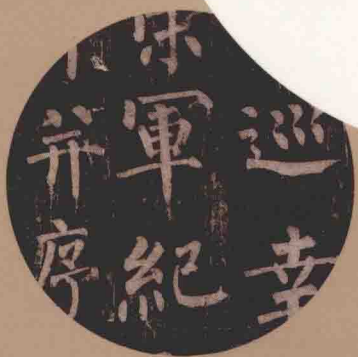 巡幸
軍紀
并序